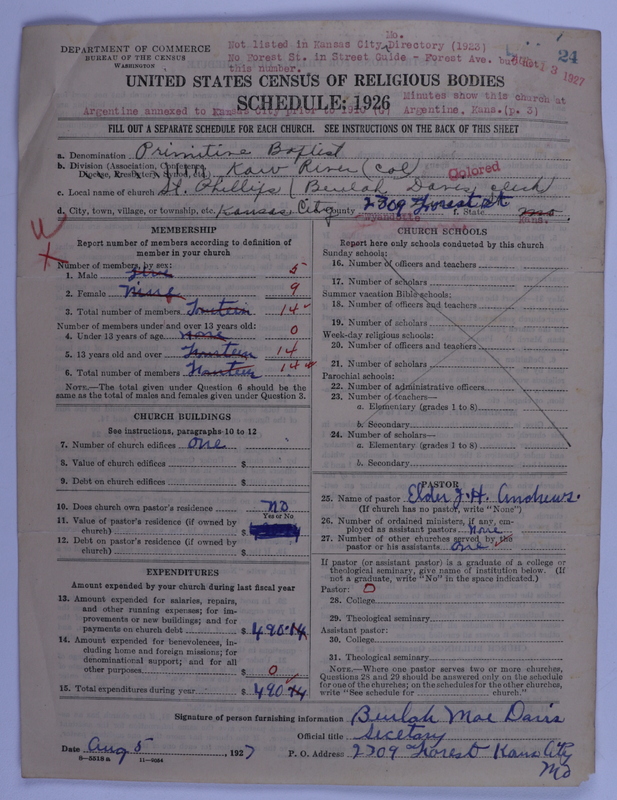 DEPARTMENT OF COMMERCE
BUREAU OF THE CENSUS
WASHINGTON
Mo.
Not listed in Kansas City Directory (1923)
No Forest St. in Street Guide - Forest Ave. but not
this number.
24
13 1927
UNITED STATES CENSUS OF RELIGIOUS BODIES
SCHEDULE: 1926
Minutes show this church at
Argentine, Kans. (p. 3)
Argentine annexed to Kansas City prior to 1910
FILL OUT A SEPARATE SCHEDULE FOR EACH CHURCH. SEE INSTRUCTIONS ON THE BACK OF THIS SHEET
a. Denomination Primitive Baptist
b. Division (Association, Conference,
Diocese, Presbytery, Synod, etc.) Kaw River (col) Colored
c. Local name of church St. Phillips (Beulah Davis clerk
d. City, town, village, or township, etc. Kansas City County 2309 Forest St f. State Mo
Wyandotte Kans.
MEMBERSHIP
Report number of members according to definition of
member in your church
Number of members, by sex:
1. Male five 5
2. Female Nine 9
3. Total number of members Fourteen 14
Number of members under and over 13 years old:
4. Under 13 years of age none 0
5. 13 years old and over Fourteen 14
6. Total number of members Fourteen 14
NOTE.—The total given under Question 6 should be the
same as the total of males and females given under Question 3.
CHURCH BUILDINGS
See instructions, paragraphs 10 to 12
7. Number of church edifices one
8. Value of church edifices $
9. Debt on church edifices $
10. Does church own pastor's residence no
Yes or No
11. Value of pastor's residence (if owned by
church) $
12. Debt on pastor's residence (if owned by
church) $
EXPENDITURES
Amount expended by your church during last fiscal year
13. Amount expended for salaries, repairs,
and other running expenses; for im-
provements or new buildings; and for
payments on church debt $ 490.14
14. Amount expended for benevolences, in-
cluding home and foreign missions; for
denominational support; and for all
other purposes $ 0
15. Total expenditures during year $ 490
CHURCH SCHOOLS
Report here only schools conducted by this church
Sunday schools:
16. Number of officers and teachers
17. Number of scholars
Summer vacation Bible schools:
18. Number of officers and teachers
19. Number of scholars
Week-day religious schools:
20. Number of officers and teachers
21. Number of scholars
Parochial schools:
22. Number of administrative officers
23. Number of teachers—
a. Elementary (grades 1 to 8)
b. Secondary
24. Number of scholars—
a. Elementary (grades 1 to 8)
b. Secondary
PASTOR
25. Name of pastor Elder J. H. Andrews.
(If church has no pastor, write "None")
26. Number of ordained ministers, if any, em-
ployed as assistant pastors none
27. Number of other churches served by the
pastor or his assistants one
If pastor (or assistant pastor) is a graduate of a college or
theological seminary, give name of institution below. (If
not a graduate, write "No" in the space indicated.)
Pastor:
28. College
29. Theological seminary
Assistant pastor:
30. College
31. Theological seminary
NOTE.—Where one pastor serves two or more churches,
Questions 28 and 29 should be answered only on the schedule
for one of the churches; on the schedules for the other churches,
write "See schedule for church."
Signature of person furnishing information Beulah Mae Davis
Official title Secetary
Date Aug 5, 1927 P. O. Address 2309 Forest Kans City
Mo
8—5518a 11—9054